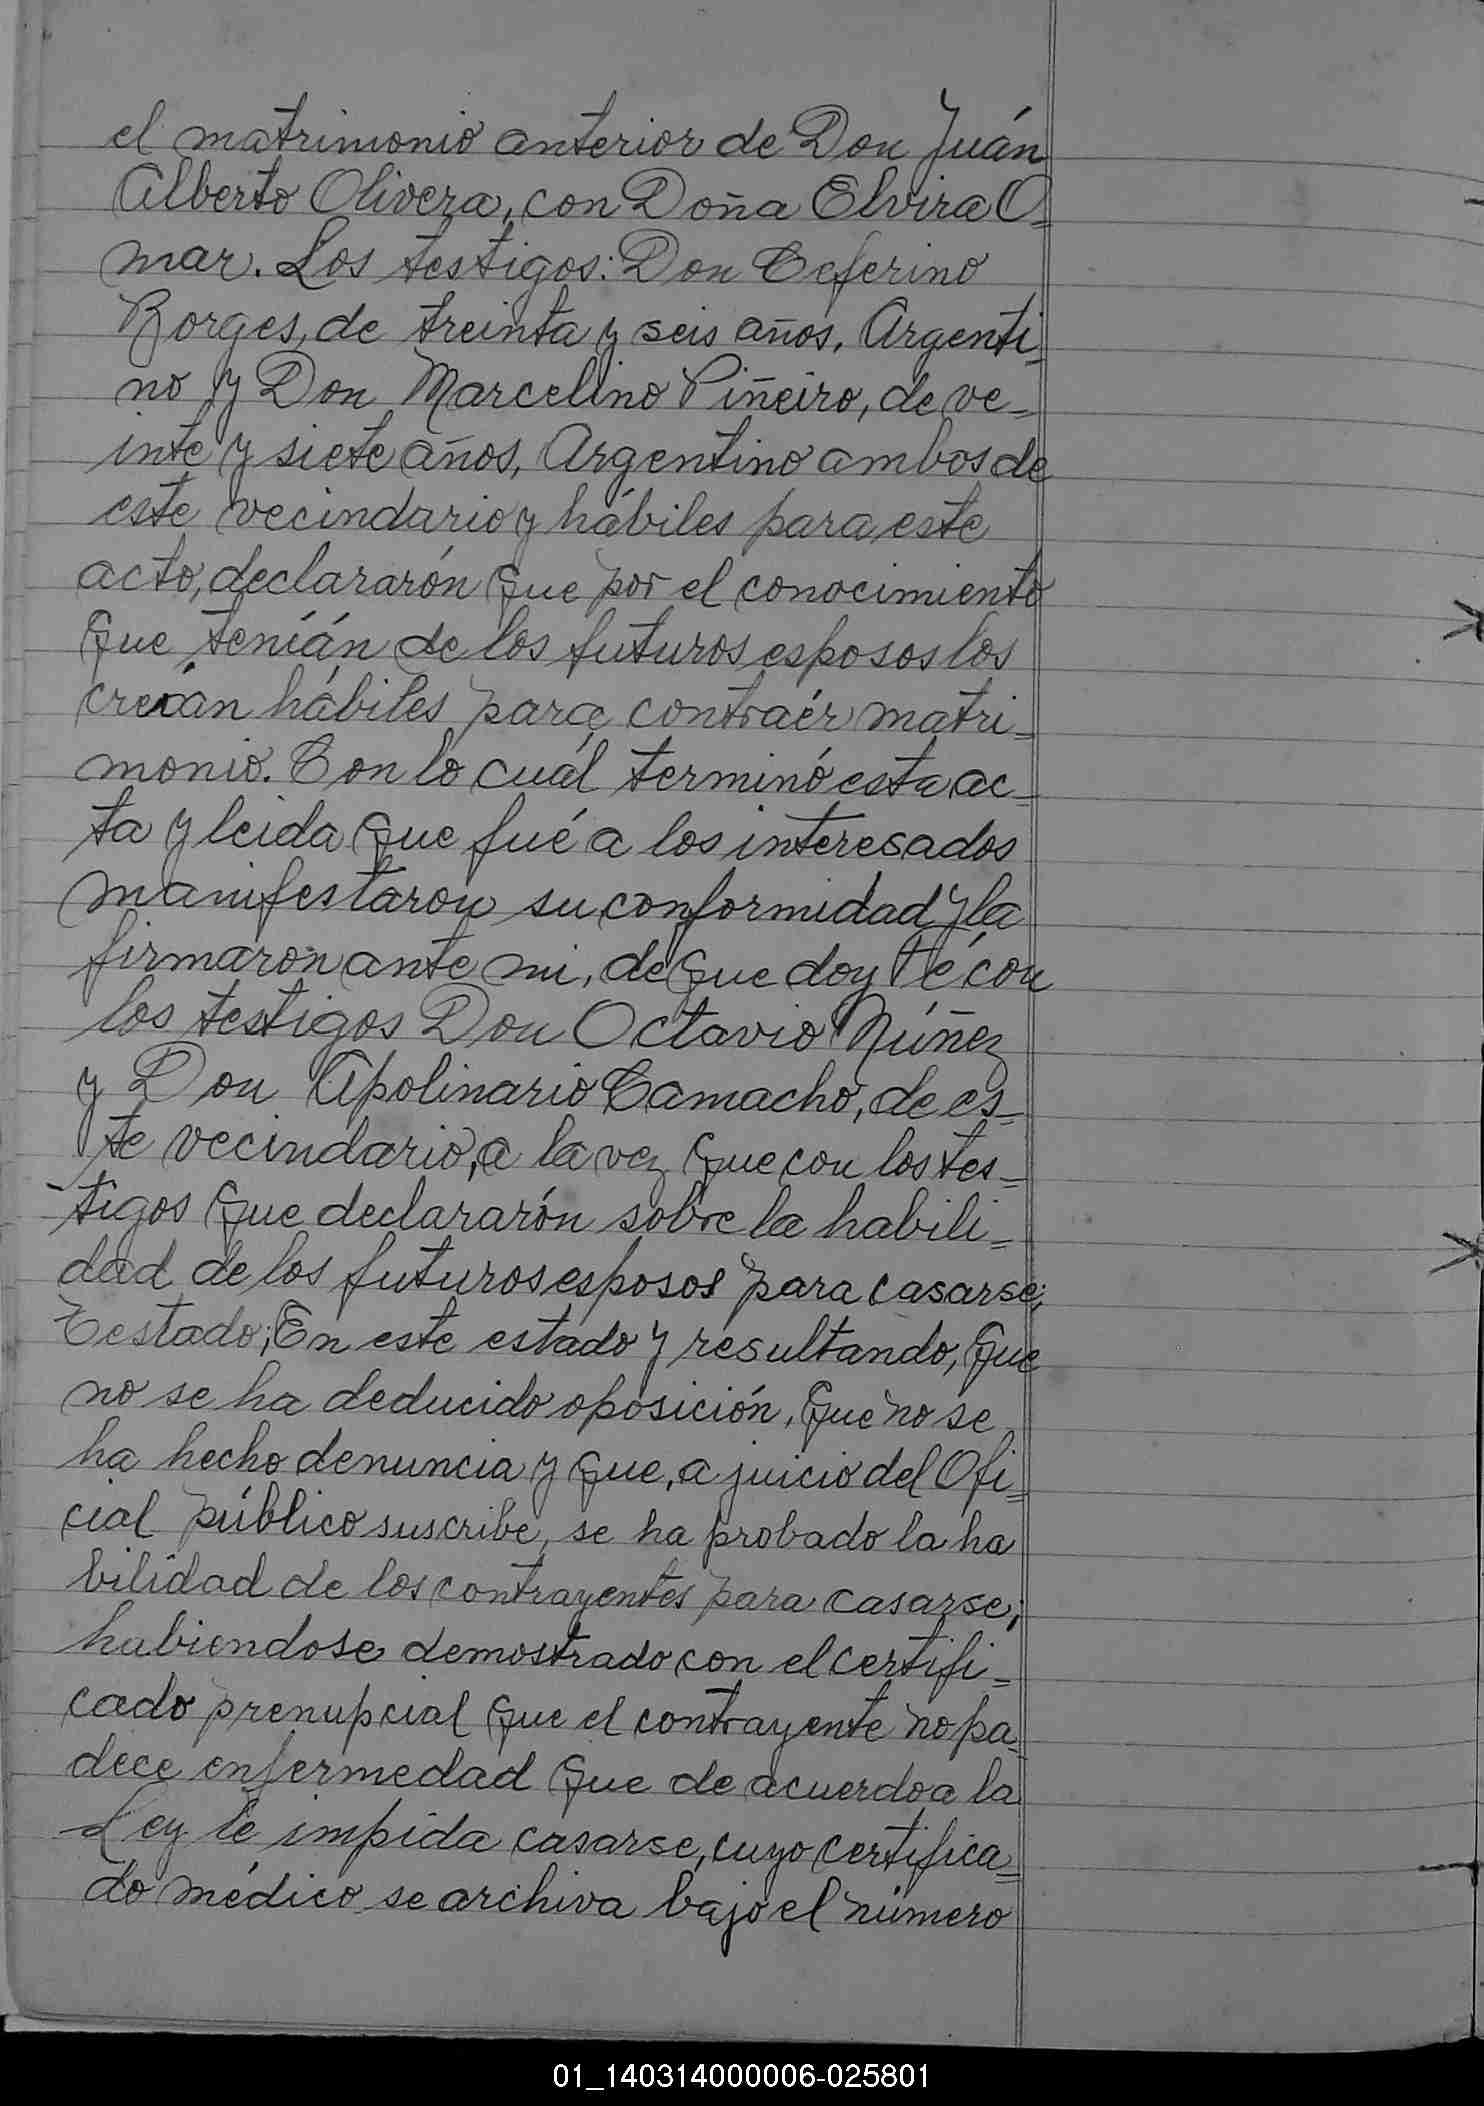 el matrimonio anterior de Don Juán
Alberto Olivera, con Doña Elvira O=
mar. Los testigos: Don Ceferino
Borges, de treinta y seis años, Argenti=
no y Don Marcelino Piñeiro, de ve=
inte y siete años, Argentino ambos de
este vecindario y hábiles para este
acto, declararón que por el conocimiento
que teníán de los futuros esposos los
creían hábiles para contraér matri=
monio. Con lo cuál terminó esta ac=
ta y leida que fué a los interesados
manifestaron su conformidad y la
firmaron ante mi, de que doy Fé con
los testigos Don Octavio Núñez
y Don Apolinario Camacho, de es=
te vecindario, a la vez que con los tes=
tigos que declararón sobre la habili=
dad de los futuros esposos para casarse;
estado; En este estado y resultando, que
no se ha deducido oposición, que no se
ha hecho denuncia y que, a juicio del Ofi=
cial público suscribe, se ha probado la ha
bilidad de los contrayentes para casarse;
habiendose demostrado con el certifi=
cado prenupcial que el contrayente no pa=
dece enfermedad que de acuerdo a la
Ley le impida casarse, cuyo certifica=
do médico se archiva bajo el número
01_140314000006-025801